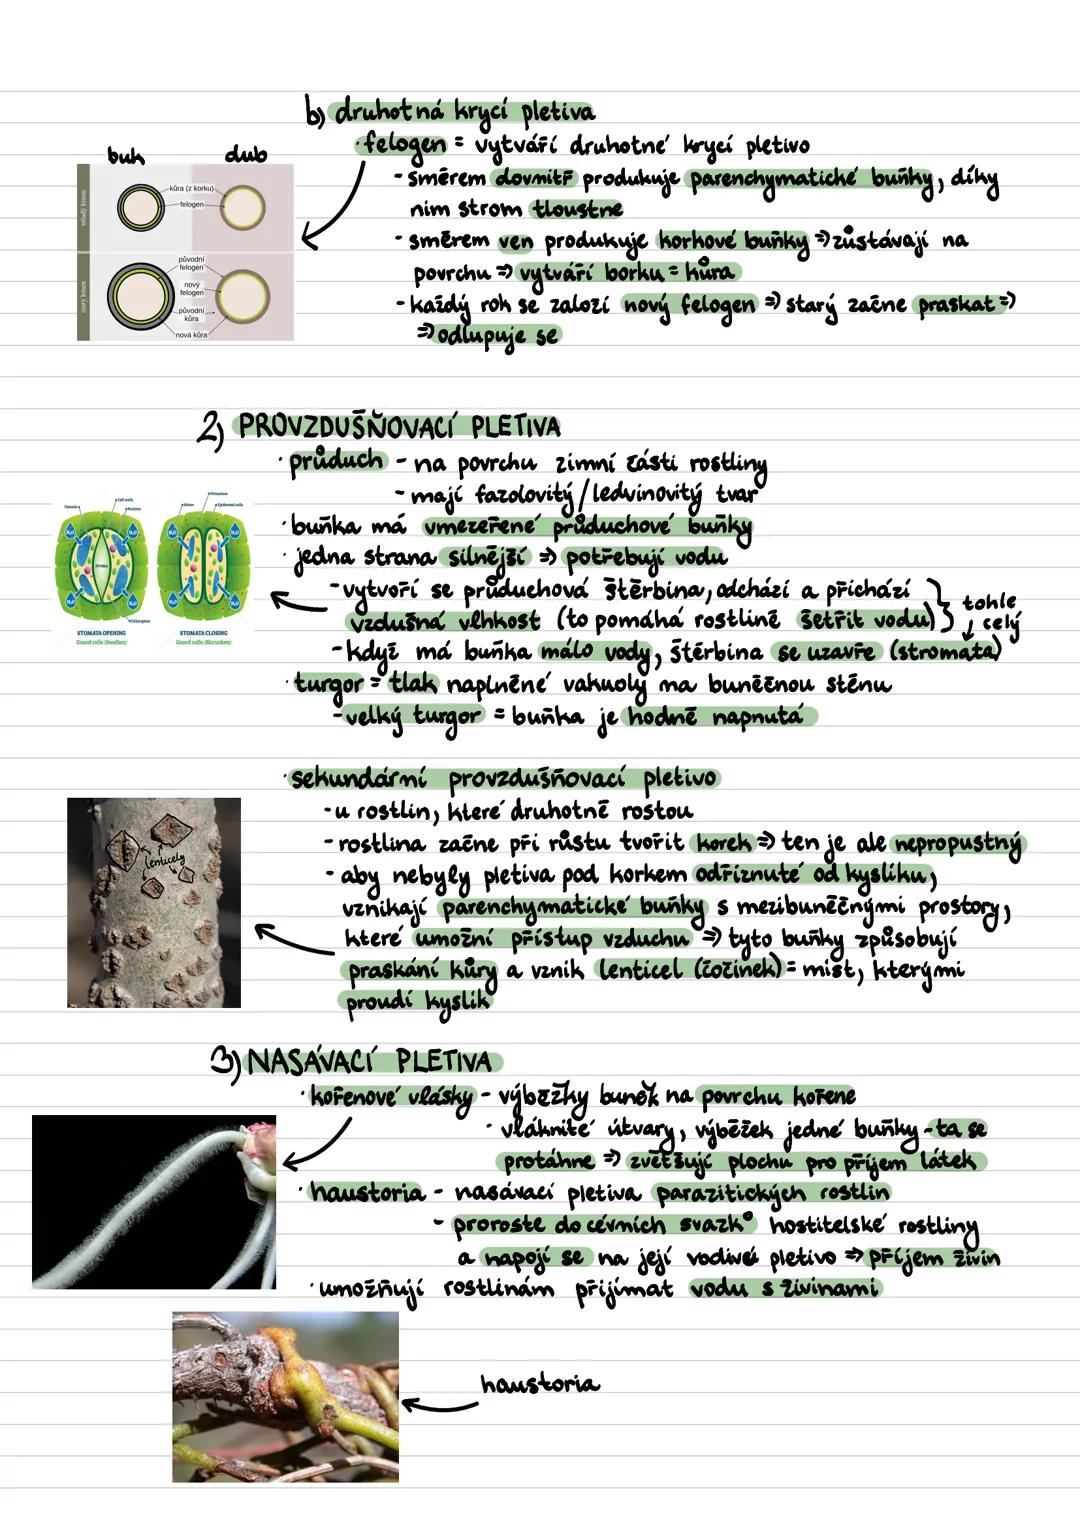 b) druhotná krycí pletiva
· felogen = vytváří druhotné krycí pletivo
- směrem dovnitř produkuje parenchymatické buňky, díky
nim strom tloustne
- směrem ven produkuje korkové buňky => zůstávají na
povrchu => vytváří borku = kůra
- každý rok se založí nový felogen => starý začne praskat =>
=> odlupuje se
buk dub
mladý kmen
kůra (z korku)
felogen
starý kmen
původní
felogen
nový
felogen
původní
kůra
nová kůra
2) PROVZDUŠŇOVACÍ PLETIVA
· průduch - na povrchu zimní části rostliny
- mají fazolovitý/ledvinovitý tvar
· buňka má vmezeřené průduchové buňky
· jedna strana silnější => potřebují vodu
- vytvoří se průduchová štěrbina, odchází a přichází
vzdušná vlhkost (to pomáhá rostlině šetřit vodu) } tohle celý
- když má buňka málo vody, štěrbina se uzavře (stromata)
· turgor = tlak naplněné vakuoly ma buněčnou stěnu
- velký turgor = buňka je hodně napnutá
Vacuole Cell walls Nucleus
H₂O H₂O
STOMA
H₂O H₂O
Chloroplast
STOMATA OPENING
Guard cells (Swollen)
Water Potassium Epidermal cells
H₂O H₂O
H₂O H₂O
STOMATA CLOSING
Guard cells (Shrunken)
· sekundární provzdušňovací pletivo
- u rostlin, které druhotně rostou
- rostlina začne při růstu tvořit korek => ten je ale nepropustný
- aby nebyly pletiva pod korkem odříznuté od kyslíku,
vznikají parenchymatické buňky s mezibuněčnými prostory,
které umožní přístup vzduchu => tyto buňky způsobují
praskání kůry a vznik lenticel (čočinek) = míst, kterými
proudí kyslík
lenticely
3) NASÁVACÍ PLETIVA
· kořenové vlásky - výběžky buněk na povrchu kořene
· vláknité útvary, výběžek jedné buňky - ta se
protáhne => zvětšují plochu pro příjem látek
· haustoria - nasávací pletiva parazitických rostlin
- proroste do cévních svazků hostitelské rostliny
a napojí se na její vodivé pletivo => příjem živin
· umožňují rostlinám přijímat vodu s živinami
haustoria